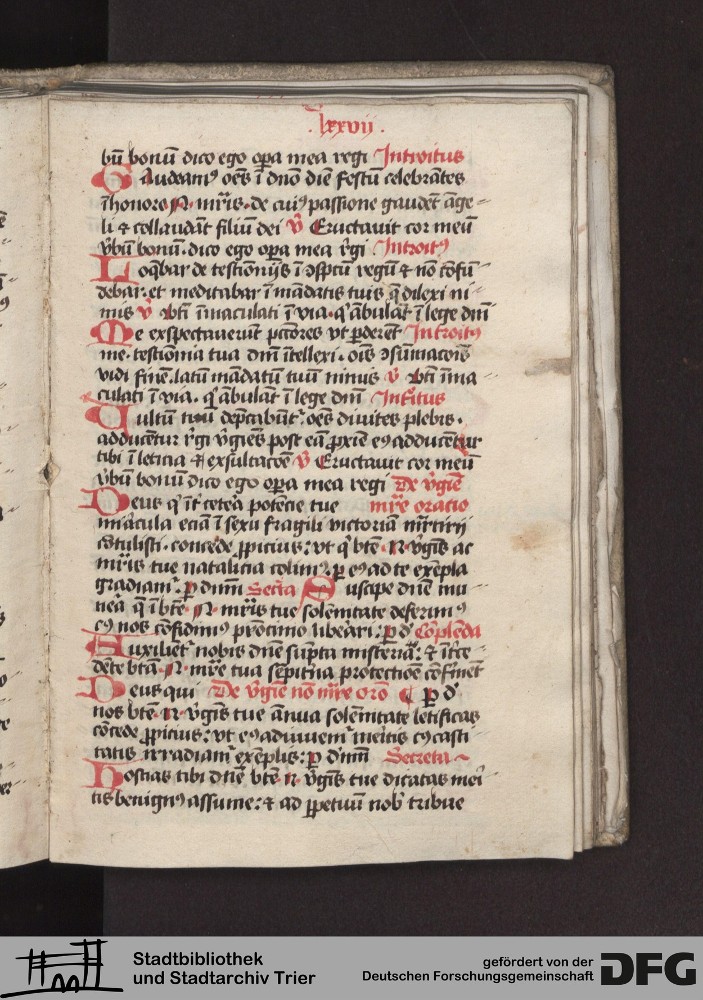 . lxxvii .
bū bonū dico ego opa mea regi Introitus
Gaudeam⁹ oēs ī dnō diē festū celebrātes
ī honore .N. mr̄is. de cui⁹ passione gaudēt āge-
li ⁊ collaudāt filiū dei v̄ Eructauit cor meū
v̄bū bonū. dico ego opa mea r̄gi Introit⁹
Loq̄bar de testīonijs ī ꝯspctu regū ⁊ nō cōfū-
debar. et meditabar ī mādatis tuis q̄ dilexi ni-
mis v̄ Bti īmaculati ī via. q' ābulāt ī lege dnī
Me exspectauerūt pctores vt pderēt Introit⁹
me. testīonia tua dnē ītellexi. oīs ꝯsūmacōis
vidi finē. latū mādatū tuū nimis v̄ Bti īma
culati ī via. q' ābulāt ī lege dnī Introitus
Vultū tuū dep̄cabūt'. oēs diuites plebis.
adducētur r̄gi v̄gīes post eā. ꝓxīe ei⁹ adducētur
tibi ī leticia ⁊ exsultacōe v̄ Eructauit cor meū
v̄bū bonū dico ego opa mea regi De v̄gīe
Deus q' īt' cetēa potēcie tue mr̄e oratio
mir̄acula eciā ī sexu fragili victoriā mr̄tirij
cōtulisti. concede ꝓpicius: vt q' btē .N. v̄gīs ac
mr̄is tue natalicia colim⁹. p ei⁹ ad te exēpla
gradiam'. p dnm Secr̄ta Suscipe dnē mu-
nēa q̄ ī btē .N. mr̄is tue solēmitate deferim⁹
c⁹ nos cōfidim⁹ pr̄ocīnio libēari: p d' Cōplēda
Auxiliēt' nobis dnē sūpta misteria: ⁊ īt'ce-
dēte btā .N. mr̄e tua sēpitīna protectiōe cōfirmēt
Deus qui De v̄gīe nō mr̄e orō ¶ p d'
nos btē .N. v̄gīs tue ānua solēmitate letificas
cōcede ꝓpicius: vt ei⁹ adiuuem' mēitis c⁹ casti-
tatis irradiam' exēplis: p dnm Secreta
Hostias tibi dnē btē .N. v̄gīs tue dicatas mēi-
tis benign⁹ assume: ⁊ ad ꝑpetuū nob' tribue
Stadtbibliothek
und Stadtarchiv Trier
gefördert von der
Deutschen Forschungsgemeinschaft
DFG